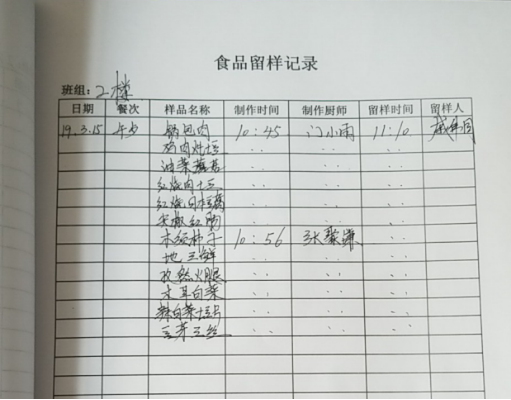 食品留样记录
班组: 2楼
日期 餐次 样品名称 制作时间 制作厨师 留样时间 留样人
19.3.15 午 锅包肉 10:45 门小雨 11:10
鸡肉炖土豆
油菜蘑菇
红烧肉土豆
红烧日本豆腐
尖椒
木须柿子 10:56 张
地三鲜
孜然火腿
木耳白菜
辣白菜土豆片
豆芽豆丝